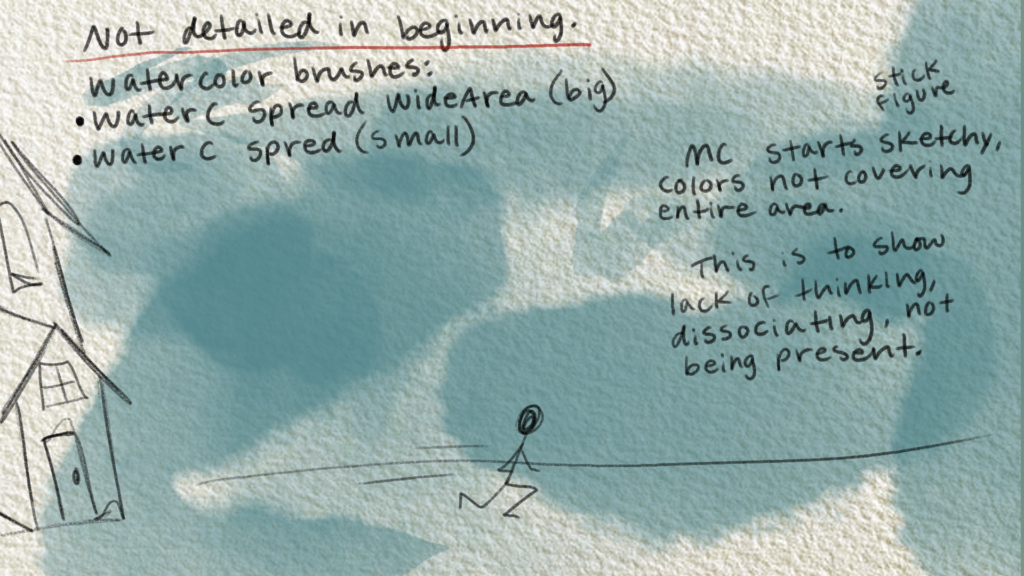 Not detailed in beginning.
watercolor brushes:
• water C Spread wideArea (big)
• water C spred (small)
stick
figure
MC starts sketchy,
colors not covering
entire area.
This is to show
lack of thinking,
dissociating, not
being present.